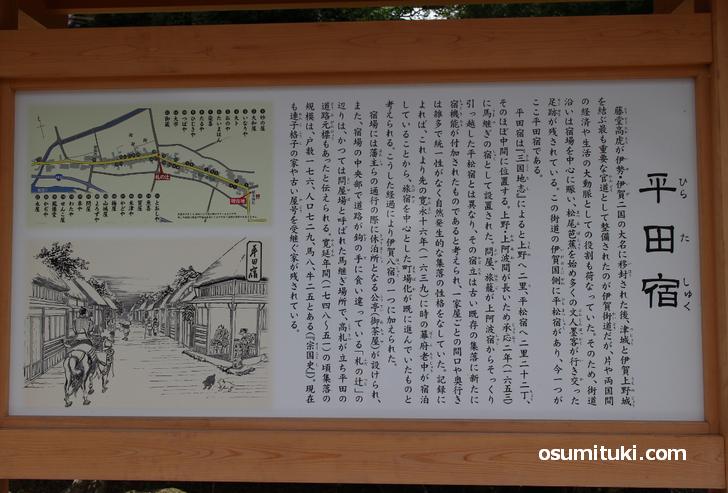 平田宿
ひら た しゅく
藤堂高虎が伊勢・伊賀二国の大名に移封された後、津城と伊賀上野城
を結ぶ最も重要な官道として整備されたのが伊賀街道だが、片や両国間
の経済や生活の大動脈としての役割も荷なっていた。そのため、街道
沿いは宿場を中心に賑い、松尾芭蕉を始め多くの文人墨客が行き交った
足跡が残されている。この街道の伊賀国側に平松宿があり、今一つが
ここ平田宿である。
平田宿は『三国地志』によると上野へ二里、平松宿へ二里二十二丁、
そのほぼ中間に位置する。上野・上阿波間が長いため承応二年(一六五三)
に馬継ぎの宿として設置された。問屋、旅籠が上阿波宿からそっくり
引っ越した平松宿とは異なり、その宿立は古い既存の集落に新たに
宿機能が付加されたものであると考えられ、一家屋ごとの間口や奥行き
は雑多で統一性がなく自然発生的な集落の性格をなしていた。記録に
よれば、これより先の寛永十六年(一六三九)に時の幕府老中が宿泊
していることから、旅宿を中心とした町場化が既に進んでいたものと
考えられる。こうした経過により伊賀八宿の一つに加えられた。
宿場には藩主らの通行の際に休泊所となる公亭(御茶屋)が設けられ、
また、宿場の中央部で道路が鉤の手に食い違っている「札の辻」の
辺りは、かつては問屋場と呼ばれた馬継ぎ場所で、高札が立ち平田の
道路元標もあったと伝えられる。寛延年間(一七四八〜五一)の頃集落の
規模は、戸数一七六、人口七二九、馬八、牛二五とある(『宗国史』)。現在
も連子格子の家や古い屋号を受継ぐ家が残されている。
札の辻
現在地
平田宿
osumituki.com